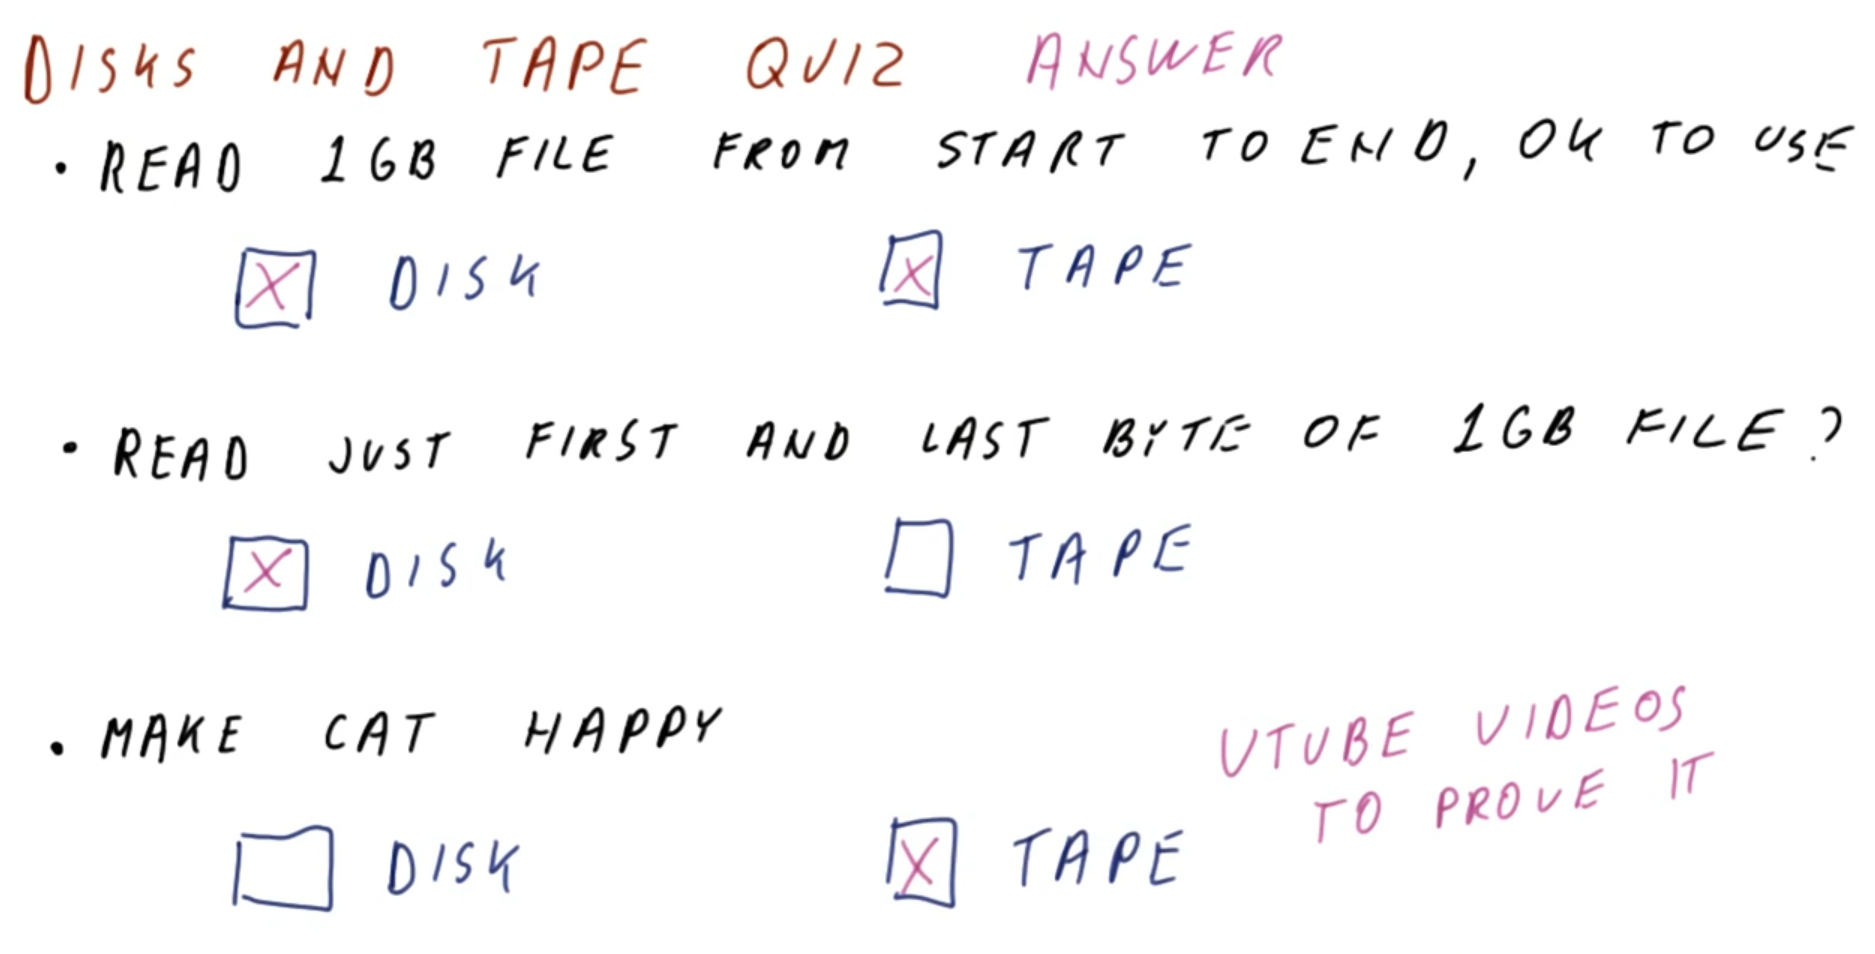 DISKS AND TAPE QUIZ ANSWER
• READ 1GB FILE FROM START TO END, OK TO USE
X DISK X TAPE
• READ JUST FIRST AND LAST BYTE OF 1GB FILE?
X DISK TAPE
• MAKE CAT HAPPY
UTUBE VIDEOS
TO PROVE IT
DISK X TAPE